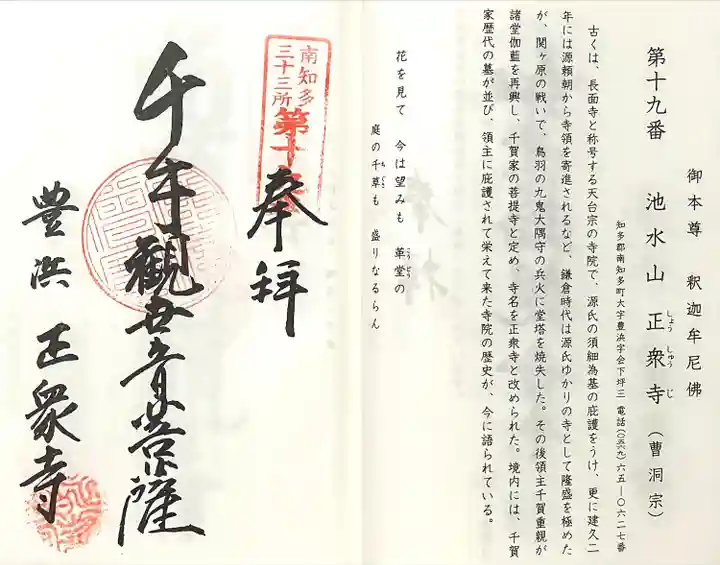 御本尊 釈迦牟尼佛
第十九番 池水山 正衆寺（曹洞宗）
しょう しゅう じ
知多郡南知多町大字豊浜字会下坪三 電話(〇五六九)六五―〇六二七番
古くは、長面寺と称号する天台宗の寺院で、源氏の須細為基の庇護をうけ、更に建久二
年には源頼朝から寺領を寄進されるなど、鎌倉時代は源氏ゆかりの寺として隆盛を極めた
が、関ヶ原の戦いで、鳥羽の九鬼大隅守の兵火に堂塔を焼失した。その後領主千賀重親が
諸堂伽藍を再興し、千賀家の菩提寺と定め、寺名を正衆寺と改められた。境内には、千賀
家歴代の墓が並び、領主に庇護されて栄えて来た寺院の歴史が、今に語られている。
花を見て 今は望みも 革堂の
こうどう
庭の千草も 盛りなるらん
ちぐさ
南知多
三十三所
第十九
奉拝
千手観世音菩薩
豊浜 正衆寺